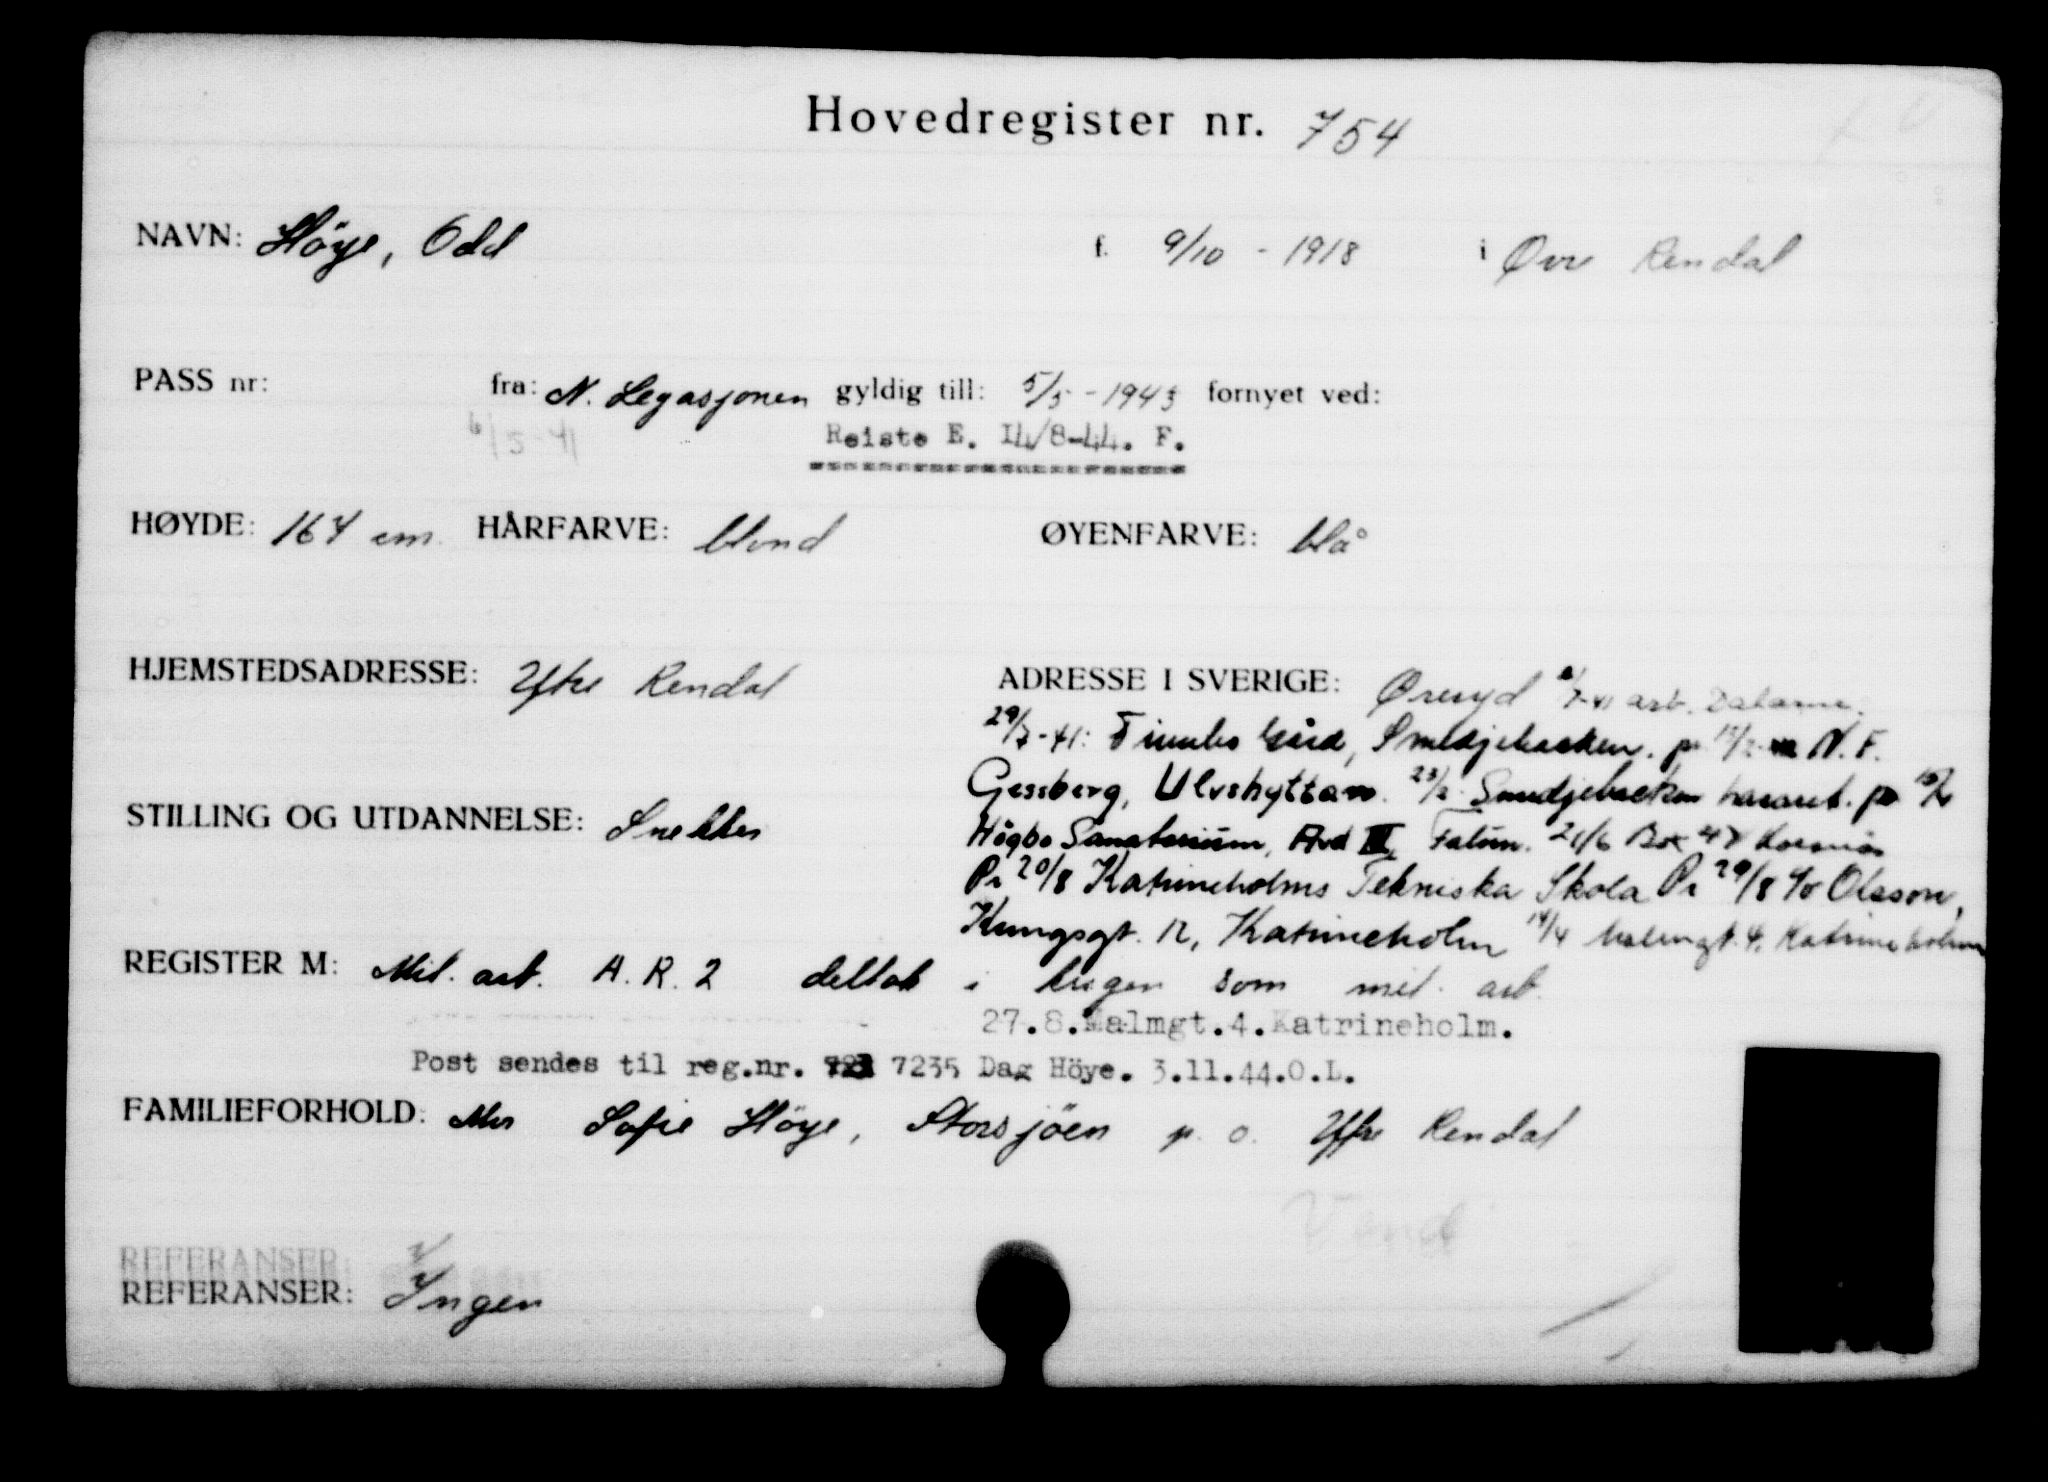 Hovedregister nr. 754
NAVN: Höye, Odd f. 9/10 - 1918 i Øvre Rendal
PASS nr: fra: N. Legasjonen gyldig till: 5/5 - 1943 fornyet ved:
6/5-41 Reiste E. 14/8-44. F.
HØYDE: 164 cm. HÅRFARVE: blond ØYENFARVE: blå
HJEMSTEDSADRESSE: Yttre Rendal ADRESSE I SVERIGE: Øreryd arb. Dalarne.
29/7-41: Gård, Smedjebacken. pr N. F.
Gessberg, Ulvshyttan. 23/2 Smedjebacken pr
STILLING OG UTDANNELSE: Snekker
Högbo Sanatorium, Avd III, Falun. 21/6 Box 47 Korsnäs
Pr 20/8 Katrineholms Tekniska Skola Pr 29/8 c/o Olsson,
Kungsgt. 12, Katrineholm 14/4 Malmgt. 4. Katrineholm
REGISTER M: Mil. arb. A. R. 2 deltok i krigen som mil. arb.
27.8.Malmgt.4.Katrineholm.
Post sendes til reg.nr. 7235 Dag Höye. 3.11.44.O.L.
FAMILIEFORHOLD: Mor Sofie Höye, Storsjöen p. o. Yttre Rendal
Vend
REFERANSER:
REFERANSER: Ingen